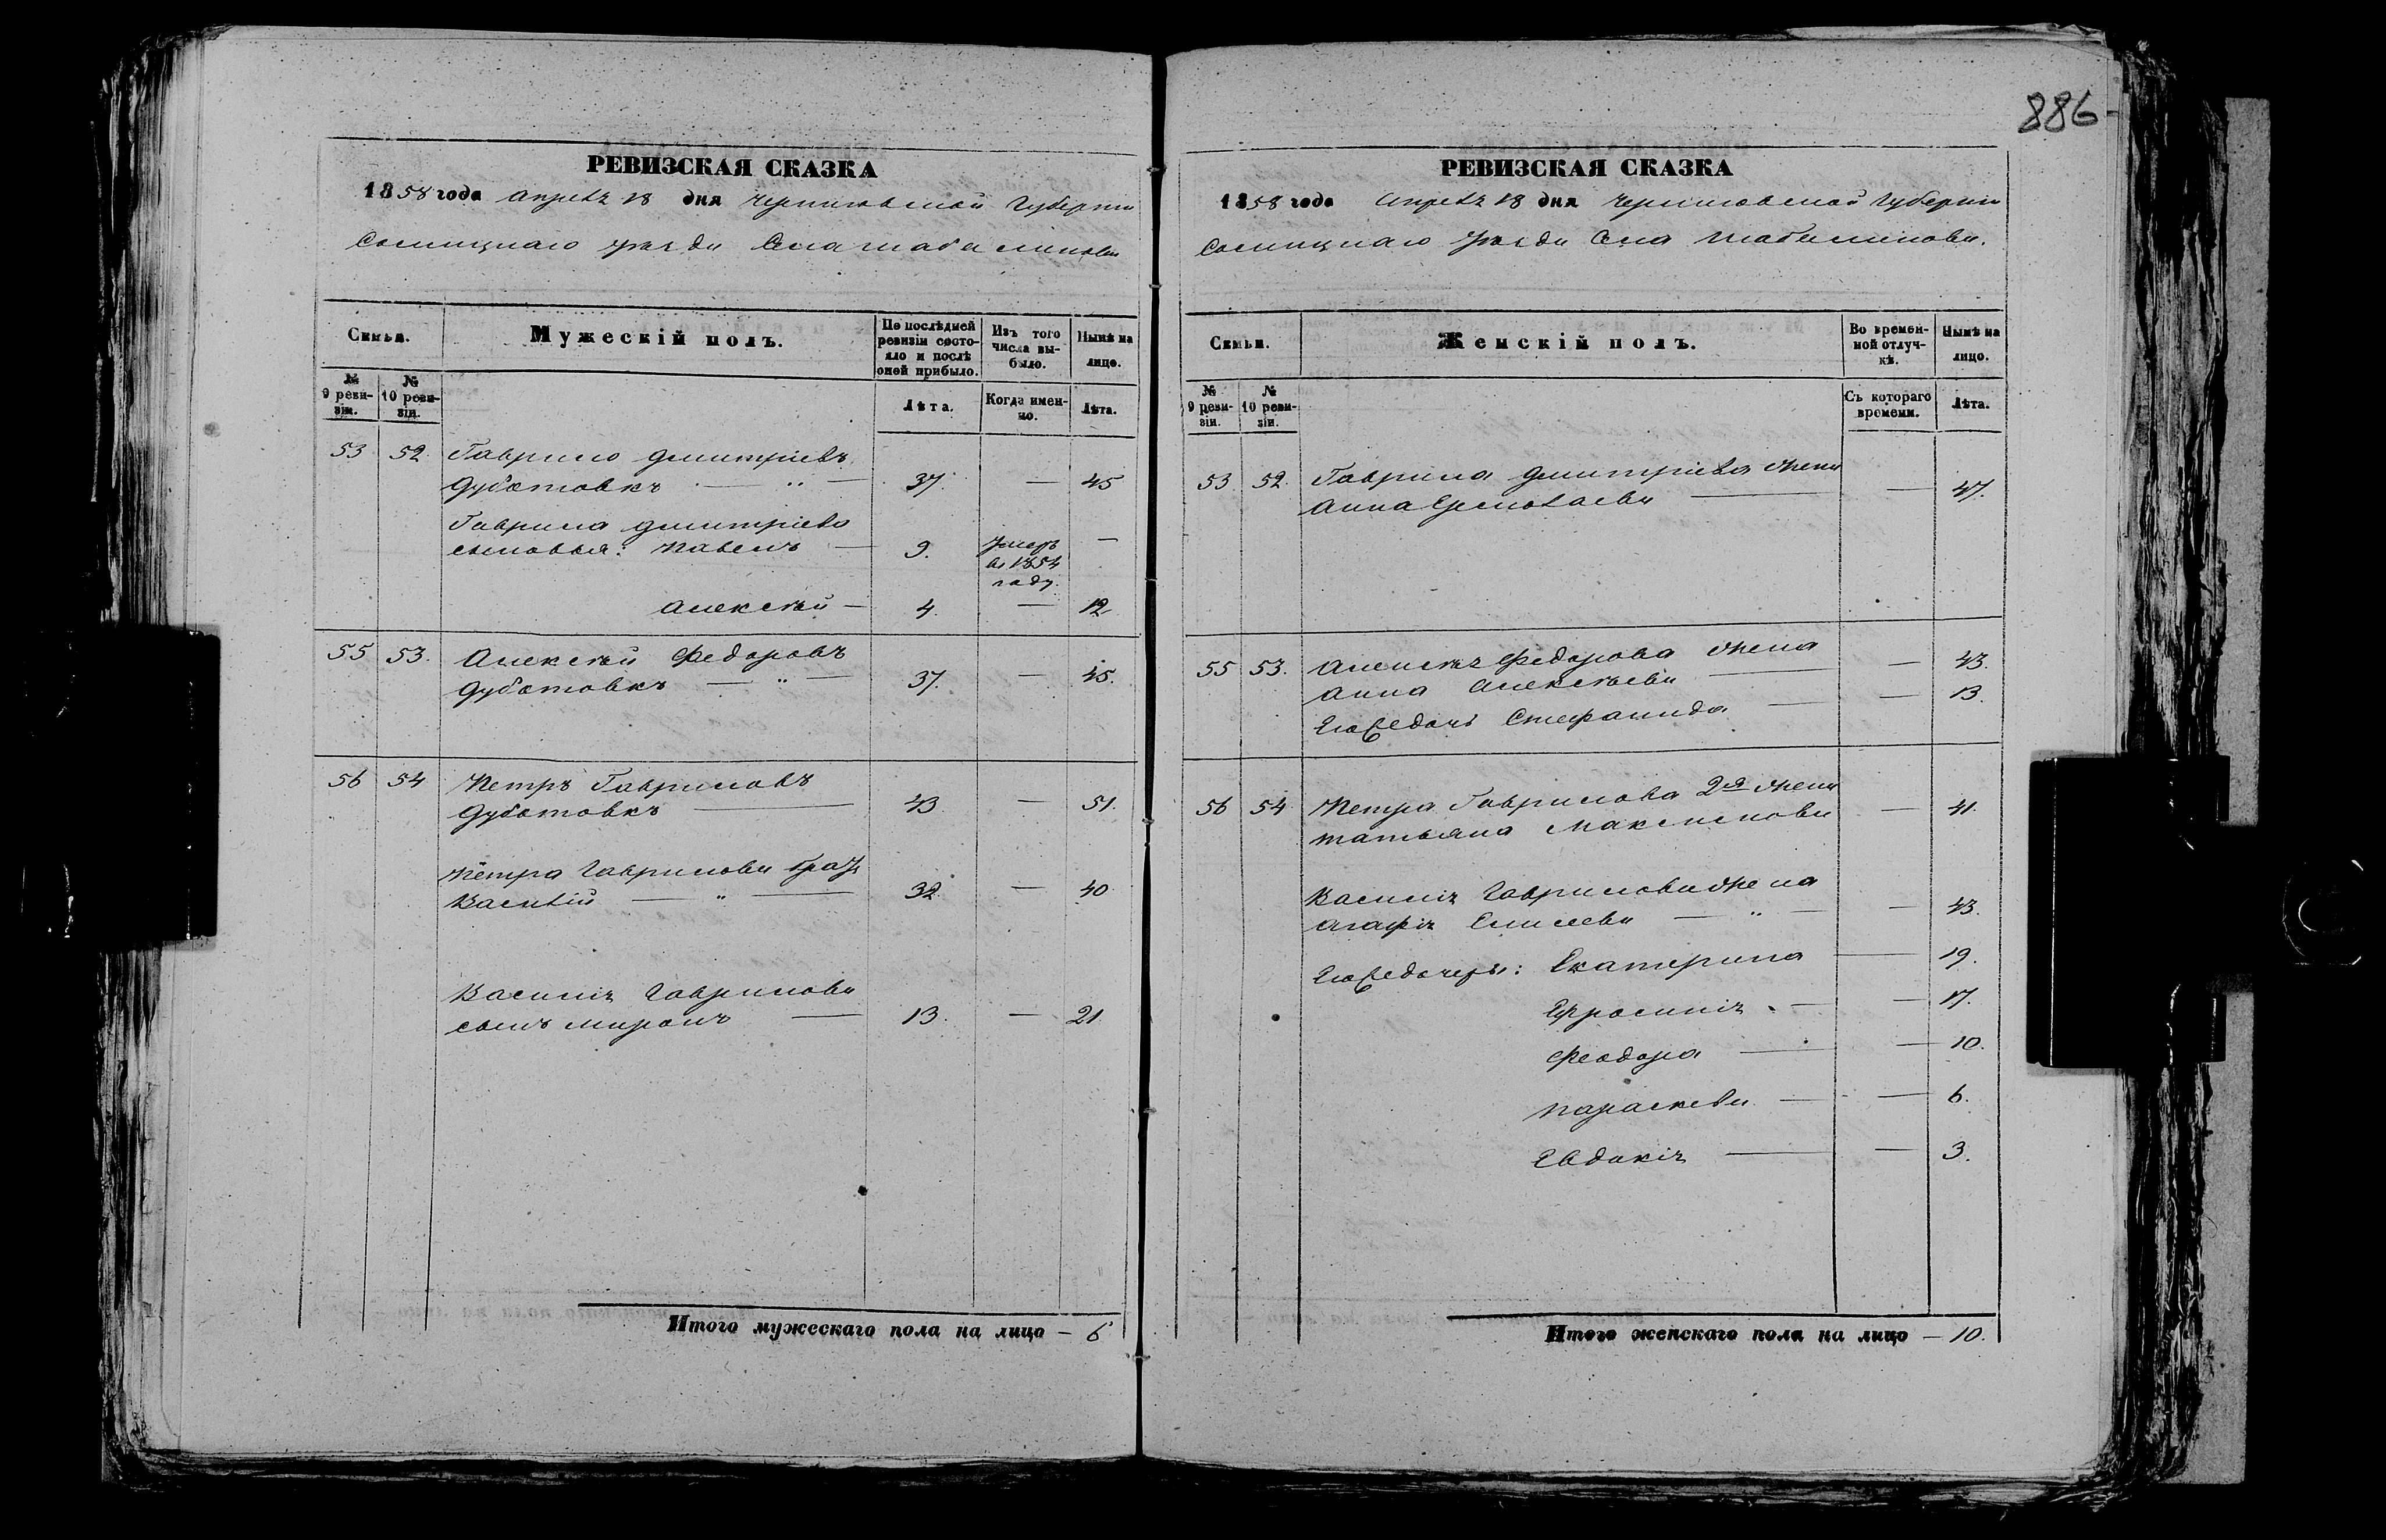 886
РЕВИЗСКАЯ СКАЗКА
1858 года Апреля 18 дня Черниговской Губернии
Сосницкаго уезда Села Шабалинова
Семьи.
Мужескій полъ.
По послѣдней ревизіи состояло и послѣ оной прибыло.
Изъ того числа выбыло.
Нынѣ на лицо.
№ 9 ревизіи.
№ 10 ревизіи.
Лѣта.
Когда именно.
Лѣта.
53 52 Гаврило Дмитріевъ
Дубатовкъ — " — 37. — 45
Гаврила Дмитріева
сыновья: Павелъ — 9. умеръ в 1854 году. —
Алексѣй — 4. — 12
55 53. Алексѣй Федоровъ
Дубатовкъ — " — 37. — 45.
56 54 Петръ Гавриловъ
Дубатовкъ — 43 — 51.
Петра Гаврилова братъ
Василій — " — 32 — 40
Василія Гаврилова
сынъ Миронъ — 13. — 21
Итого мужескаго пола на лицо — 6
РЕВИЗСКАЯ СКАЗКА
1858 года Апреля 18 дня Черниговской Губернии
Сосницкаго уезда Села Шабалинова.
Семьи.
Женскій полъ.
Во временной отлучкѣ.
Нынѣ на лицо.
№ 9 ревизіи.
№ 10 ревизіи.
Съ котораго времени.
Лѣта.
53. 52. Гаврила Дмитріева жена
Анна Ермолаева — — 47.
55 53. Алексѣя Федорова жена
Анна Алексѣева — — 43.
Его дочь Стефанида — — 13.
56 54 Петра Гаврилова 2я жена
Татьяна Максимова — 41.
Василія Гаврилова жена
Агафія Елисеева — " — — 43.
дочери: Екатерина — 19.
Ефросинія — — 17.
Феодора — — 10.
Параскева — — 6.
Евдокія — — 3.
Итого женскаго пола на лицо — 10.